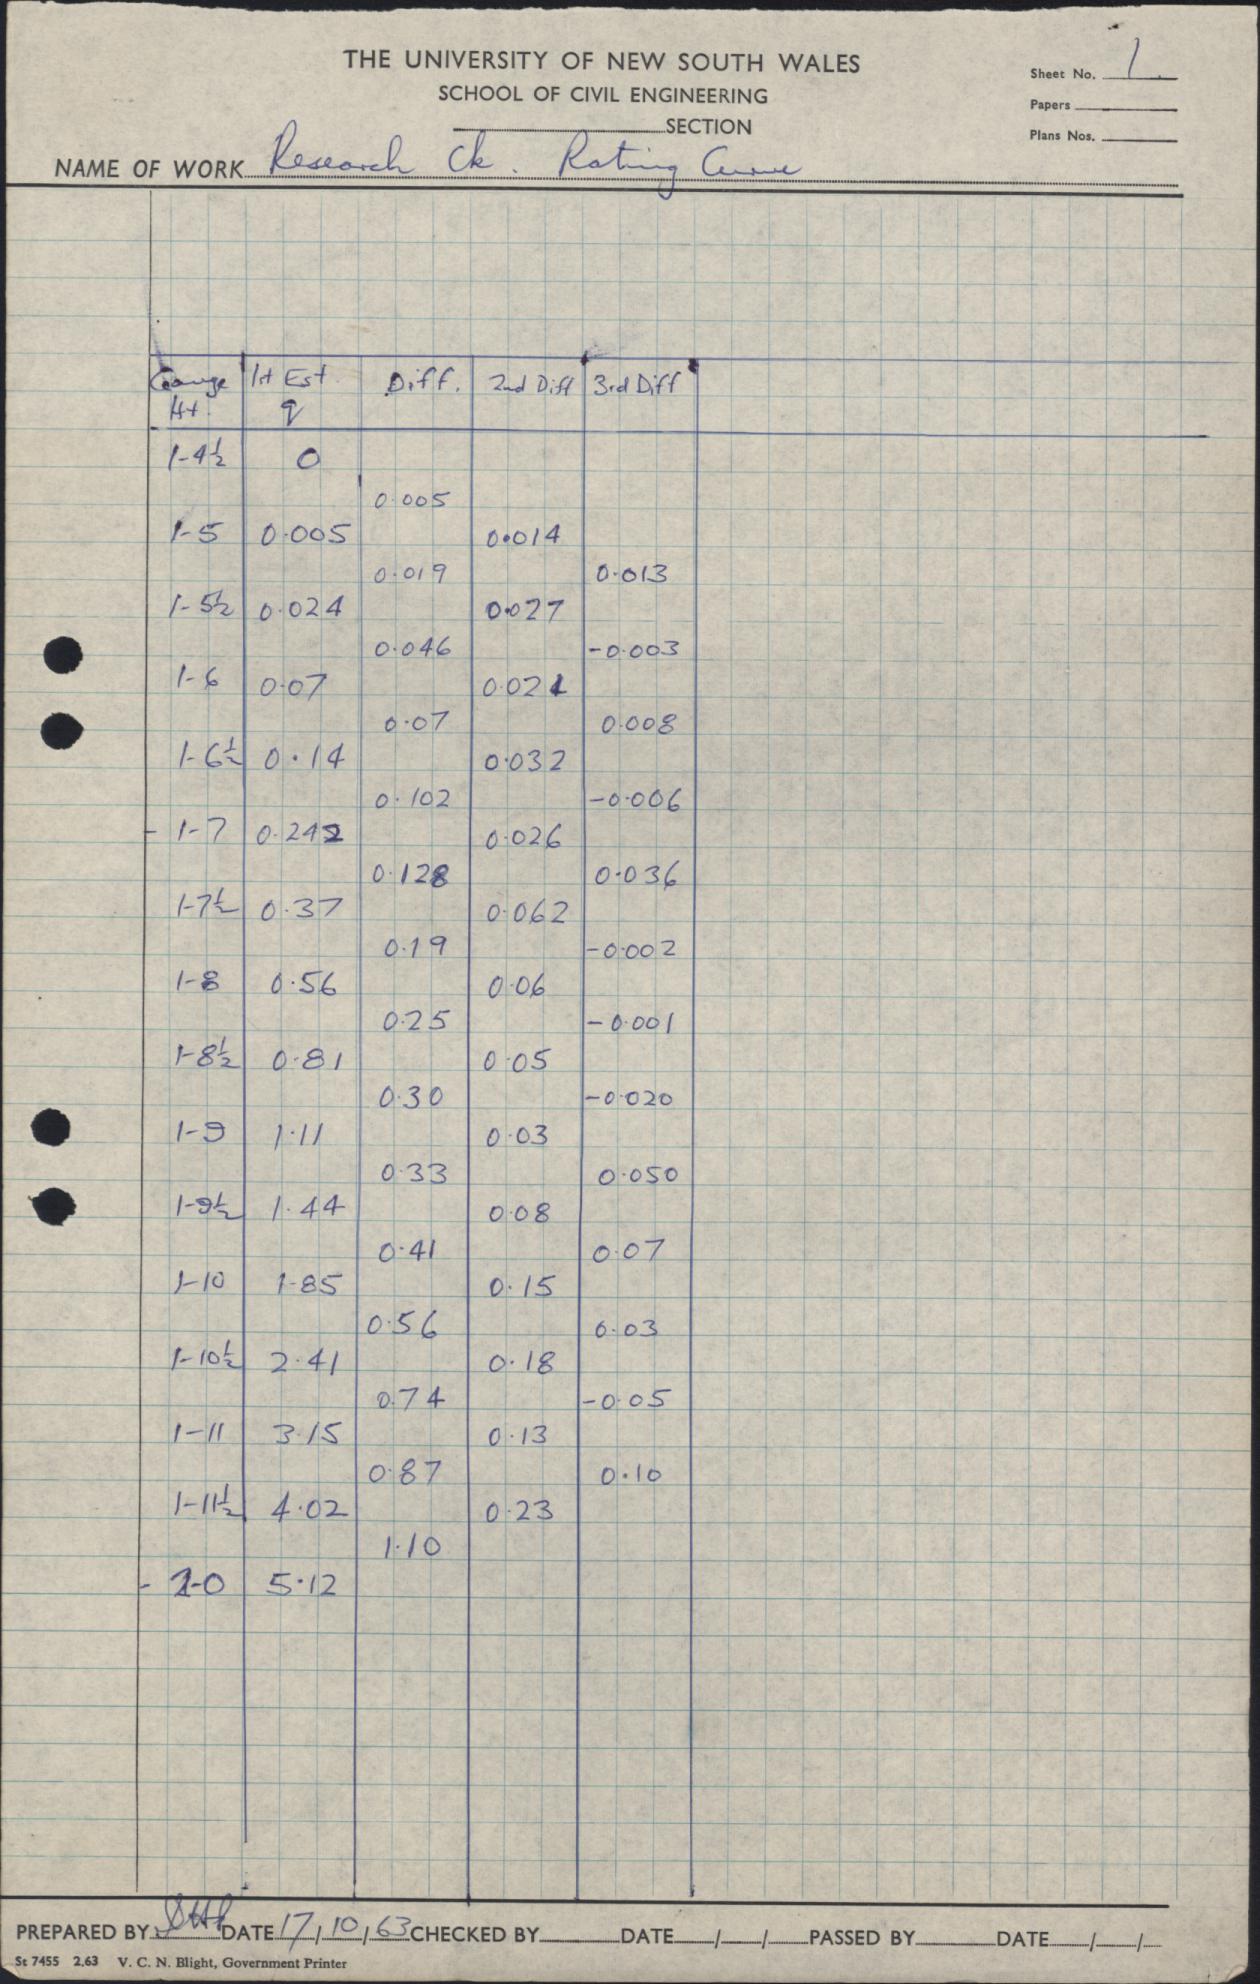 THE UNIVERSITY OF NEW SOUTH WALES
Sheet No. 1
SCHOOL OF CIVIL ENGINEERING
Papers
SECTION
Plans Nos.
NAME OF WORK Research Ck. Rating Curve
Gauge Ht. 1st Est. q Diff. 2nd Diff 3rd Diff
1-4½ 0
0.005
1-5 0.005 0.014
0.019 0.013
1-5½ 0.024 0.027
0.046 -0.003
1-6 0.07 0.021
0.07 0.008
1-6½ 0.14 0.032
0.102 -0.006
- 1-7 0.242 0.026
0.128 0.036
1-7½ 0.37 0.062
0.19 -0.002
1-8 0.56 0.06
0.25 -0.001
1-8½ 0.81 0.05
0.30 -0.020
1-9 1.11 0.03
0.33 0.050
1-9½ 1.44 0.08
0.41 0.07
1-10 1.85 0.15
0.56 0.03
1-10½ 2.41 0.18
0.74 -0.05
1-11 3.15 0.13
0.87 0.10
1-11½ 4.02 0.23
1.10
- 2-0 5.12
PREPARED BY DATE 17/10/63 CHECKED BY DATE / / PASSED BY DATE / /
St 7455 2.63 V. C. N. Blight, Government Printer